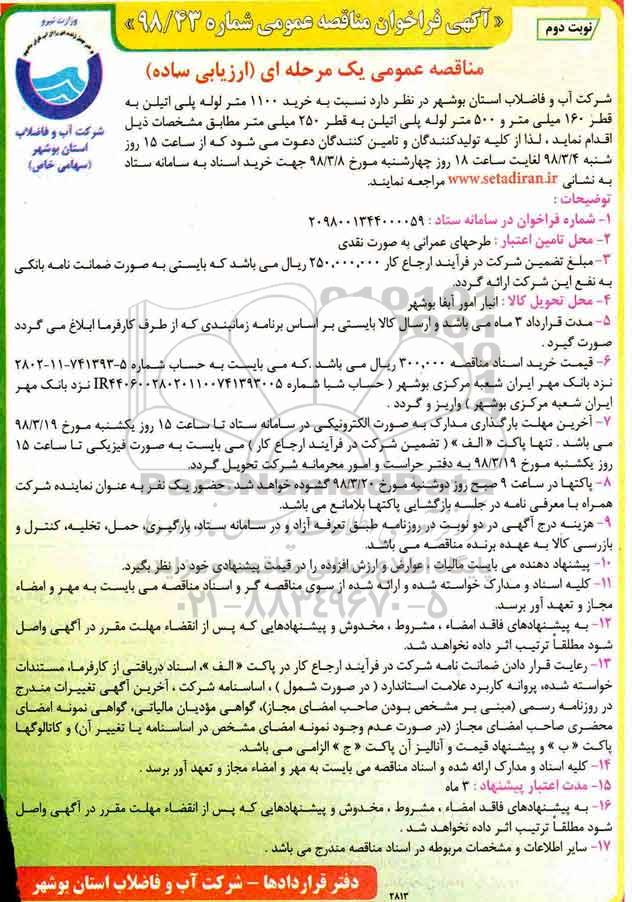 نوبت دوم
« آگهی فراخوان مناقصه عمومی شماره ۹۸/۴۳ »
وزارت نیرو
مناقصه عمومی یک مرحله ای (ارزیابی ساده)
شرکت آب و فاضلاب
استان بوشهر
(سهامی خاص)
شرکت آب و فاضلاب استان بوشهر در نظر دارد نسبت به خرید ۱۱۰۰ متر لوله پلی اتیلن به
قطر ۱۶۰ میلی متر و ۵۰۰ متر لوله پلی اتیلن به قطر ۲۵۰ میلی متر مطابق مشخصات ذیل
اقدام نماید ، لذا از کلیه تولیدکنندگان و تامین کنندگان دعوت می شود که از ساعت ۱۵ روز
شنبه ۹۸/۳/۴ لغایت ساعت ۱۸ روز چهارشنبه مورخ ۹۸/۳/۸ جهت خرید اسناد به سامانه ستاد
به نشانی www.setadiran.ir مراجعه نمایند.
توضیحات :
۱- شماره فراخوان در سامانه ستاد : ۲۰۹۸۰۰۱۳۴۴۰۰۰۰۵۹
۲- محل تامین اعتبار : طرحهای عمرانی به صورت نقدی
۳- مبلغ تضمین شرکت در فرآیند ارجاع کار ۲۵۰,۰۰۰,۰۰۰ ریال می باشد که بایستی به صورت ضمانت نامه بانکی
به نفع این شرکت ارائه گردد.
۴- محل تحویل کالا : انبار امور آبفا بوشهر
۵- مدت قرارداد ۳ ماه می باشد و ارسال کالا بایستی بر اساس برنامه زمانبندی که از طرف کارفرما ابلاغ می گردد
صورت گیرد .
۶- قیمت خرید اسناد مناقصه ۳۰۰,۰۰۰ ریال می باشد .که می بایست به حساب شماره ۵-۷۴۱۳۹۳-۱۱-۲۸۰۲
نزد بانک مهر ایران شعبه مرکزی بوشهر ( حساب شبا شماره IR۴۴۰۶۰۰۲۸۰۲۰۱۱۰۰۷۴۱۳۹۳۰۰۵ نزد بانک مهر
ایران شعبه مرکزی بوشهر ) واریز و گردد .
۷- آخرین مهلت بارگذاری مدارک به صورت الکترونیکی در سامانه ستاد تا ساعت ۱۵ روز یکشنبه مورخ ۹۸/۳/۱۹
می باشد . تنها پاکت « الف » ( تضمین شرکت در فرآیند ارجاع کار ) می بایست به صورت فیزیکی تا ساعت ۱۵
روز یکشنبه مورخ ۹۸/۳/۱۹ به دفتر حراست و امور محرمانه شرکت تحویل گردد.
۸- پاکتها در ساعت ۹ صبح روز دوشنبه مورخ ۹۸/۳/۲۰ گشوده خواهد شد . حضور یک نفر به عنوان نماینده شرکت
همراه با معرفی نامه در جلسه بازگشایی پاکتها بلامانع می باشد.
۹- هزینه درج آگهی در دو نوبت در روزنامه طبق تعرفه آزاد و در سامانه ستاد، بارگیری، حمل، تخلیه، کنترل و
بازرسی کالا به عهده برنده مناقصه می باشد.
۱۰- پیشنهاد دهنده می بایست مالیات ، عوارض و ارزش افزوده را در قیمت پیشنهادی خود در نظر بگیرد.
۱۱- کلیه اسناد و مدارک خواسته شده و ارائه شده از سوی مناقصه گر و اسناد مناقصه می بایست به مهر و امضاء
مجاز و تعهد آور برسد.
۱۲- به پیشنهادهای فاقد امضاء ، مشروط ، مخدوش و پیشنهادهایی که پس از انقضاء مهلت مقرر در آگهی واصل
شود مطلقاً ترتیب اثر داده نخواهد شد.
۱۳- رعایت قرار دادن ضمانت نامه شرکت در فرآیند ارجاع کار در پاکت « الف »، اسناد دریافتی از کارفرما، مستندات
خواسته شده، پروانه کاربرد علامت استاندارد ( در صورت شمول ) ، اساسنامه شرکت ، آخرین آگهی تغییرات مندرج
در روزنامه رسمی (مبنی بر مشخص بودن صاحب امضای مجاز)، گواهی مؤدیان مالیاتی، گواهی نمونه امضای
محضری صاحب امضای مجاز (در صورت عدم وجود نمونه امضای مشخص در اساسنامه یا تغییر آن) و کاتالوگها
پاکت « ب » و پیشنهاد قیمت و آنالیز آن پاکت « ج » الزامی می باشد.
۱۴- کلیه اسناد و مدارک ارائه شده و اسناد مناقصه می بایست به مهر و امضاء مجاز و تعهد آور برسد .
۱۵- مدت اعتبار پیشنهاد : ۳ ماه
۱۶- به پیشنهادهای فاقد امضاء ، مشروط ، مخدوش و پیشنهادهایی که پس از انقضاء مهلت مقرر در آگهی واصل
شود مطلقاً ترتیب اثر داده نخواهد شد .
۱۷- سایر اطلاعات و مشخصات مربوطه در اسناد مناقصه مندرج می باشد .
دفتر قراردادها – شرکت آب و فاضلاب استان بوشهر
۲۸۱۳
۰۲۱-۸۸۳۴۹۶۷۰-۵